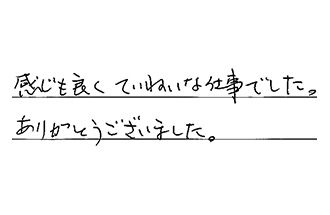 感じも良くていねいな仕事でした。
ありがとうございました。